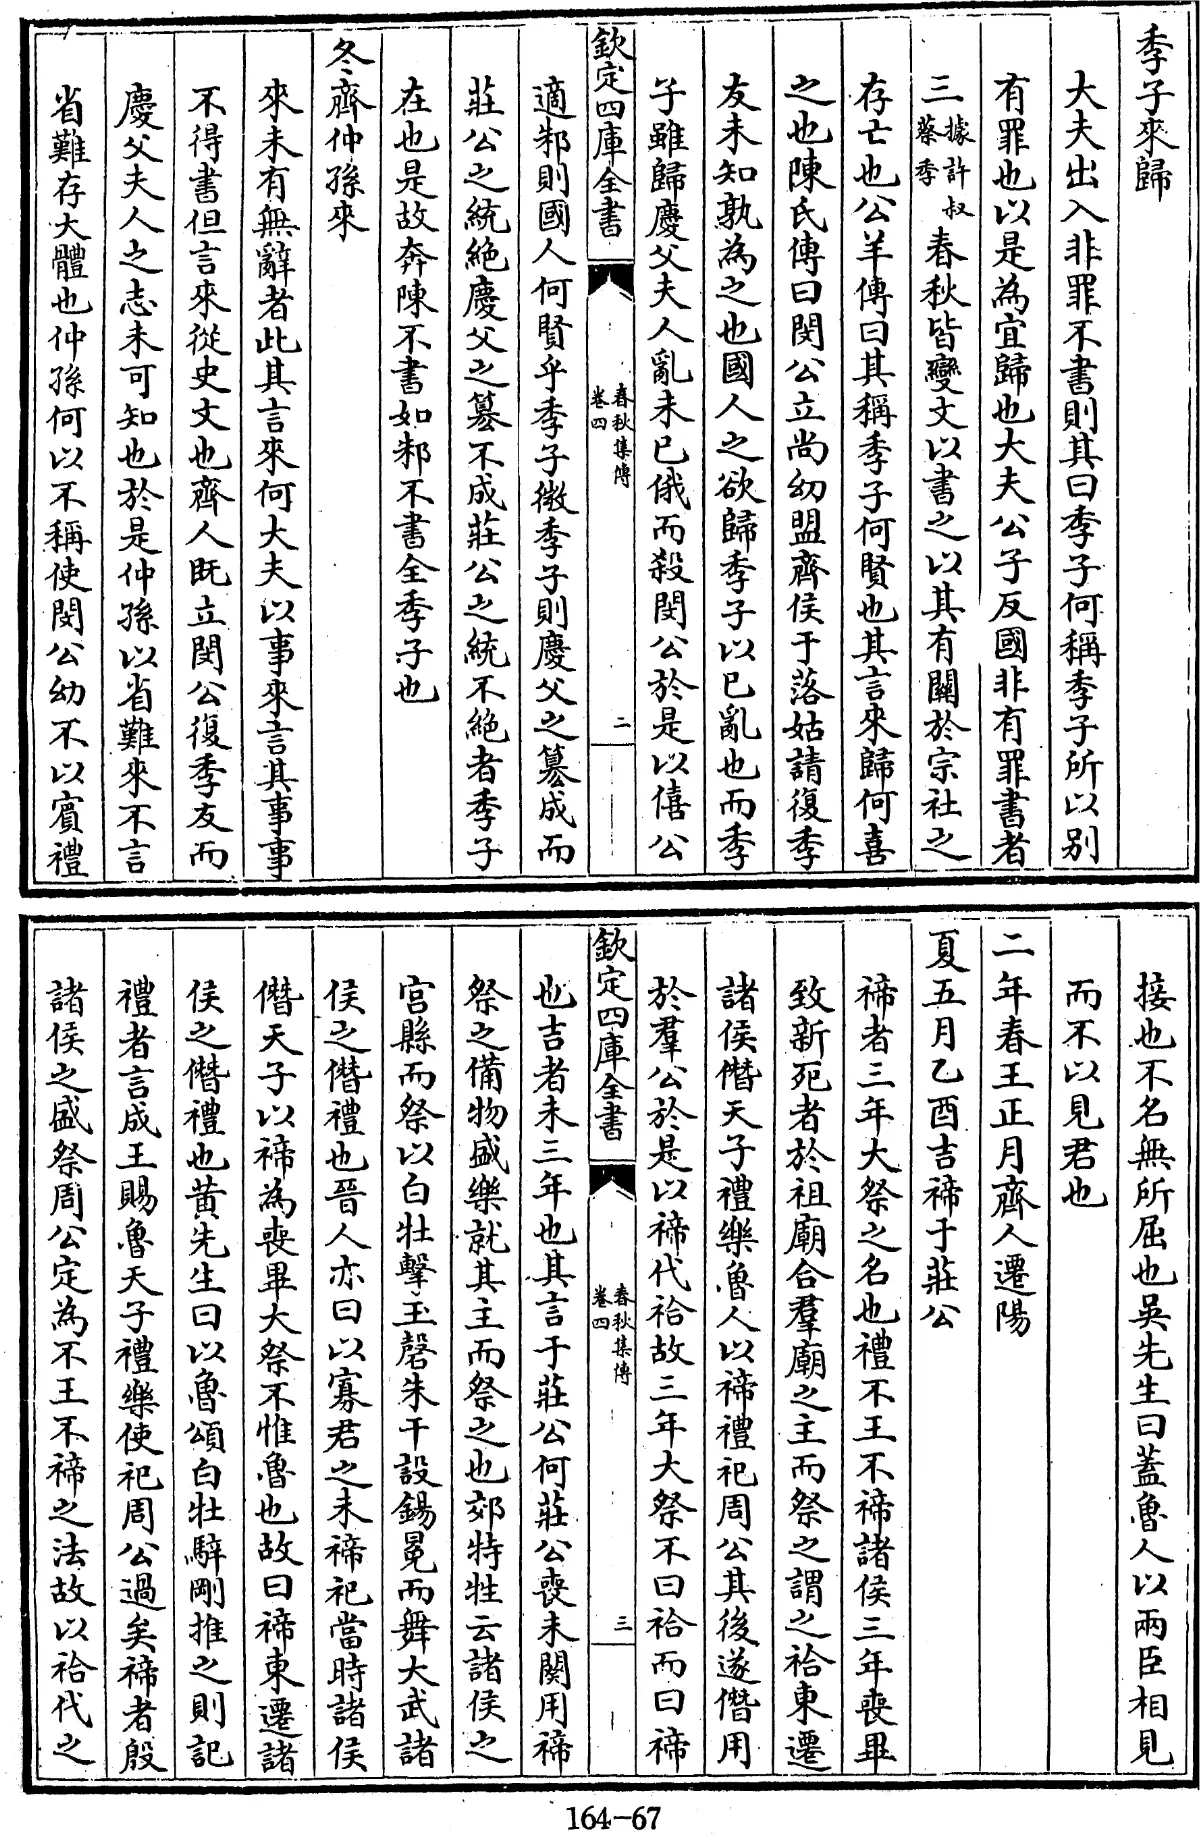 季子來歸
大夫出入非罪不書則其曰季子何稱季子所以别
有罪也以是為宜歸也大夫公子反國非有罪書者
三據許叔蔡季春秋皆變文以書之以其有關於宗社之
存亡也公羊傳曰其稱季子何賢也其言來歸何喜
之也陳氏傳曰閔公立尚幼盟齊侯于落姑請復季
友未知孰為之也國人之欲歸季子以已亂也而季
子雖歸慶父夫人亂未已俄而殺閔公於是以僖公
欽定四庫全書
春秋集傳
卷四
二
適邾則國人何賢乎季子微季子則慶父之簒成而
莊公之統絶慶父之簒不成莊公之統不絶者季子
在也是故奔陳不書如邾不書全季子也
冬齊仲孫來
來未有無辭者此其言來何大夫以事來言其事事
不得書但言來從史文也齊人既立閔公復季友而
慶父夫人之志未可知也於是仲孫以省難來不言
省難存大體也仲孫何以不稱使閔公幼不以賓禮
接也不名無所屈也吳先生曰蓋魯人以兩臣相見
而不以見君也
二年春王正月齊人遷陽
夏五月乙酉吉禘于莊公
禘者三年大祭之名也禮不王不禘諸侯三年喪畢
致新死者於祖廟合羣廟之主而祭之謂之祫東遷
諸侯僭天子禮樂魯人以禘禮祀周公其後遂僭用
於羣公於是以禘代祫故三年大祭不曰祫而曰禘
欽定四庫全書
春秋集傳
卷四
三
也吉者未三年也其言于莊公何莊公喪未闋用禘
祭之備物盛樂就其主而祭之也郊特牲云諸侯之
宫縣而祭以白牡擊玉磬朱干設錫冕而舞大武諸
侯之僭禮也晉人亦曰以寡君之未禘祀當時諸侯
僭天子以禘為喪畢大祭不惟魯也故曰禘東遷諸
侯之僭禮也黄先生曰以魯頌白牡騂剛推之則記
禮者言成王賜魯天子禮樂使祀周公過矣禘者殷
諸侯之盛祭周公定為不王不禘之法故以祫代之
164-67